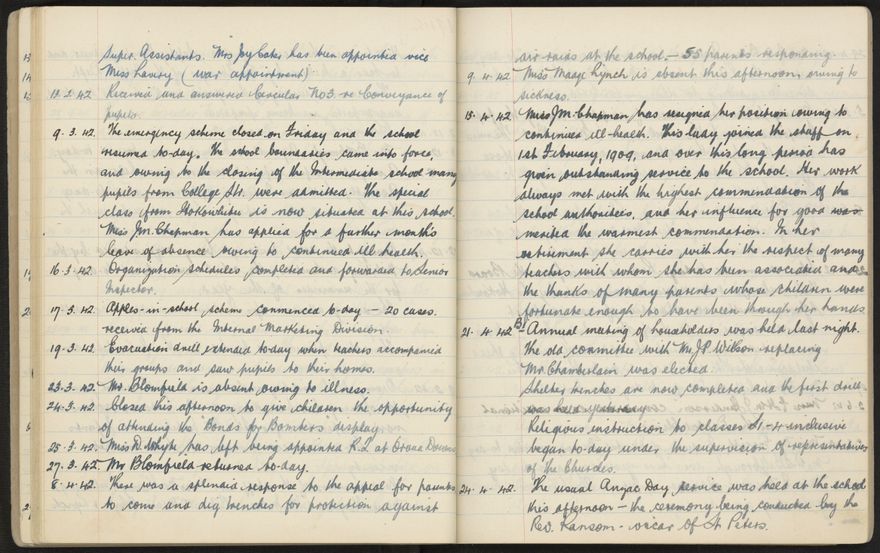 Super. Assistants. Mrs Joy Coker has been appointed vice
Miss Lavery (war appointment)
12.2.42 Received and answered Circular No 3 re Conveyance of
pupils.
9.3.42. The emergency scheme closed on Friday and the school
resumed to-day. The school boundaries came into force,
and owing to the closing of the Intermediate school many
pupils from College Str. were admitted. The special
class from Hokowhitu is now situated at this school.
Miss J.M. Chapman has applied for a further month's
leave of absence owing to continued ill health.
16.3.42. Organization schedules completed and forwarded to Senior
Inspector.
17.3.42. Apples-in-school scheme commenced to-day – 20 cases.
received from the Internal Marketing Division.
19.3.42. Evacuation drill extended to-day when teachers accompanied
their groups and saw pupils to their homes.
23.3.42. Mr. Blomfield is absent owing to illness.
24.3.42. Closed this afternoon to give children the opportunity
of attending the "Bonds for Bombers" display
25.3.42. Miss D. Whyte has left being appointed R.T. at
27.3.42. Mr Blomfield returned to-day.
8.4.42. There was a splendid response to the appeal for parents
to come and dig trenches for protection against
air raids at the school. – 55 parents responding.
9.4.42 Miss Maage Lynch is absent this afternoon owing to
sickness.
15.4.42 Miss J.M. Chapman, has resigned her position owing to
continued ill-health. This lady joined the staff on
1st February, 1909, and over this long period has
given outstanding service to the school. Her work
always met with the highest commendation of the
school authorities, and her influence for good was
merited the warmest commendation. In her
retirement she carries with her the respect of many
teachers with whom she has been associated and
the thanks of many parents whose children were
fortunate enough to have been through her hands
21.4.42 Annual meeting of householders was held last night.
The old committee with Mr J.P. Wilson replacing
Mr. Chamberlain was elected.
Shelter trenches are now completed and the first drill
was held yesterday
Religious instruction to classes S1-4 inclusive
began to-day under the supervision of representatives
of the Churches.
24.4.42. The usual Anzac Day service was held at the school
this afternoon – the ceremony being conducted by the
Rev. Ransom – vicar of St Peters.